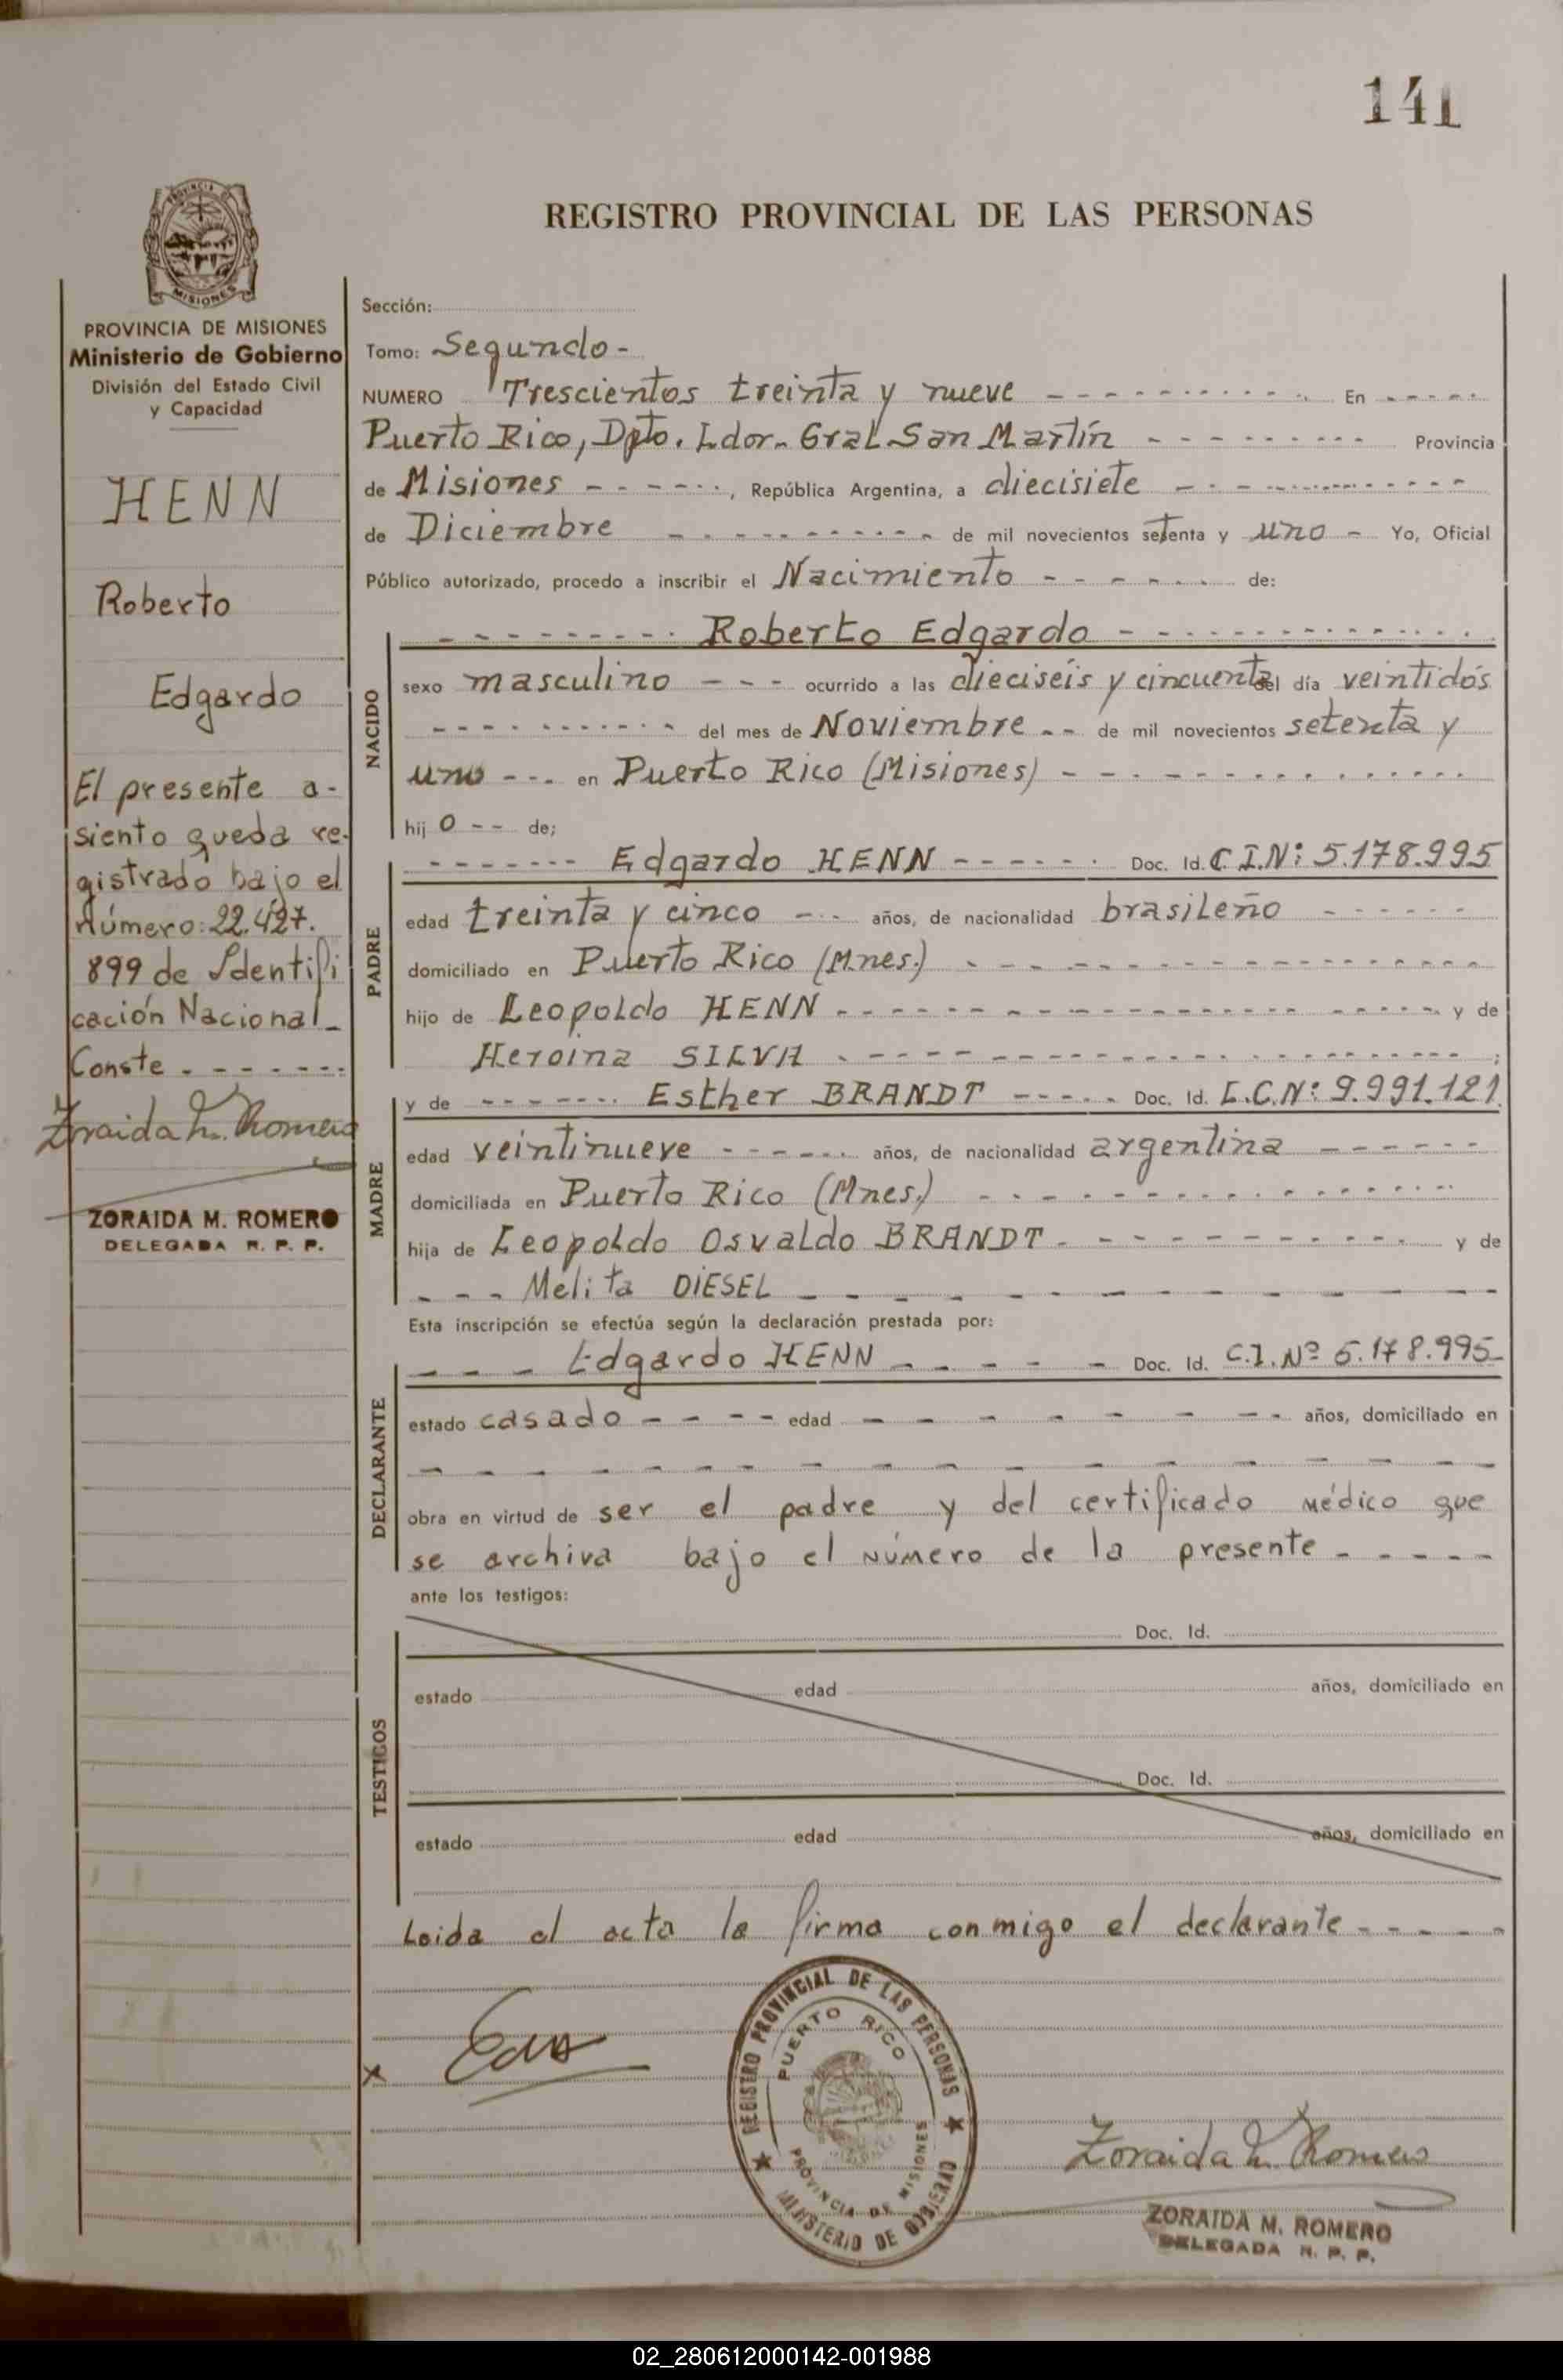 141
REGISTRO PROVINCIAL DE LAS PERSONAS
MISIONES
PROVINCIA DE MISIONES
Ministerio de Gobierno
División del Estado Civil
y Capacidad
HENN
Roberto
Edgardo
El presente a-
siento queda re-
gistrado bajo el
Número: 22.427.
899 de Identifi
cación Nacional_
Conste - - - - - -
Zoraida M. Romero
ZORAIDA M. ROMERO
DELEGADA R. P. P.
Sección:
Tomo: Segundo -
NUMERO Trescientos treinta y nueve - - - - En - - - -
Puerto Rico, Dpto. Ldor. Gral San Martín - - - - Provincia
de Misiones - - - -, República Argentina, a diecisiete - - - -
de Diciembre - - - - de mil novecientos setenta y uno - Yo, Oficial
Público autorizado, procedo a inscribir el Nacimiento - - - - de:
NACIDO
- - - - Roberto Edgardo - - - -
sexo masculino - - - ocurrido a las dieciséis y cincuenta del día veintidós
- - - - del mes de Noviembre - - de mil novecientos setenta y
uno - - - en Puerto Rico (Misiones) - - - -
hij o - - de;
PADRE
- - - - Edgardo HENN - - - - Doc. Id. C.I.Nº: 5.178.995
edad treinta y cinco - - - años, de nacionalidad brasileño - - - -
domiciliado en Puerto Rico (Mnes.) - - - -
hijo de Leopoldo HENN - - - - y de
Heroina SILVA - - - - ;
MADRE
y de - - - - Esther BRANDT - - - - Doc. Id. L.C.Nº: 9.991.121
edad veintinueve - - - - años, de nacionalidad argentina - - - -
domiciliada en Puerto Rico (Mnes.) - - - -
hija de Leopoldo Osvaldo BRANDT - - - - y de
- - - Melita DIESEL - - - -
Esta inscripción se efectúa según la declaración prestada por:
DECLARANTE
- - - Edgardo HENN - - - - Doc. Id. C.I. Nº 5.178.995-
estado casado - - - - edad - - - - años, domiciliado en
- - - -
obra en virtud de ser el padre y del certificado médico que
se archiva bajo el número de la presente - - - - -
ante los testigos:
TESTIGOS
Doc. Id.
estado edad años, domiciliado en
Doc. Id.
estado edad años, domiciliado en
Leida el acta la firma conmigo el declarante - - - - -
x
REGISTRO PROVINCIAL DE LAS PERSONAS
PUERTO RICO
PROVINCIA DE MISIONES
MINISTERIO DE GOBIERNO
Zoraida M. Romero
ZORAIDA M. ROMERO
DELEGADA R. P. P.
02_280612000142-001988